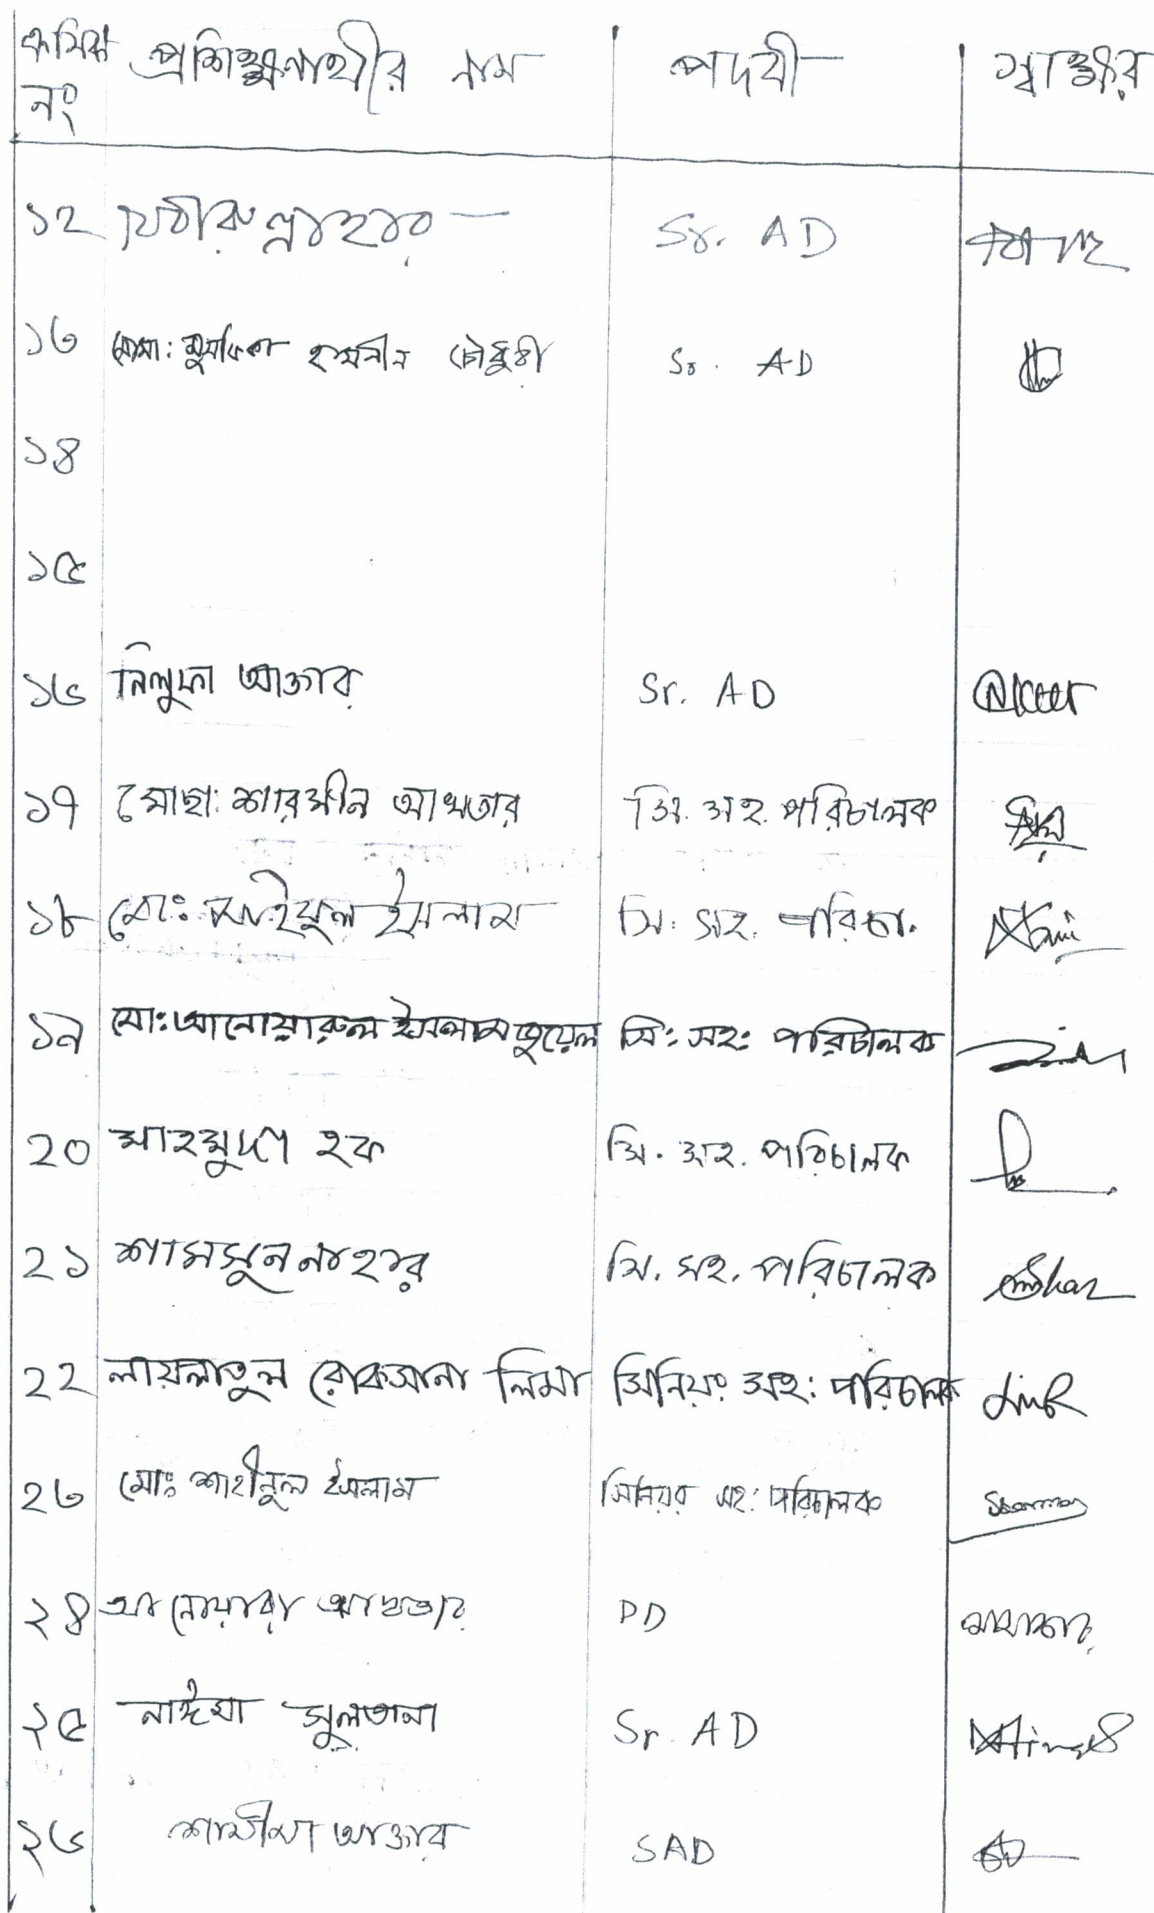 ক্রমিক নং প্রশিক্ষনার্থীর নাম পদবী স্বাক্ষর
১২ Sr. AD
১৩ মোসা: চৌধুরী Sr. AD
১৪
১৫
১৬ নিলুফা আক্তার Sr. AD
১৭ মোছা: শারমীন আখতার সি. সহ. পরিচালক
১৮ মো: সাইফুল ইসলাম সি: সহ. পরিচা.
১৯ মো: আনোয়ারুল ইসলাম জুয়েল সি: সহ: পরিচালক
২০ মাহমুদা হক সি. সহ. পরিচালক
২১ শামসুন নাহার সি. সহ. পরিচালক
২২ লায়লাতুল রোকসানা লিমা সিনিয়ঃ সহ: পরিচালক
২৩ মোঃ শাহীনুল ইসলাম সিনিয়র সহ: পরিচালক
২৪ আনোয়ারা আখতার DD
২৫ নাঈমা সুলতানা Sr. AD
২৬ শামীমা আক্তার SAD